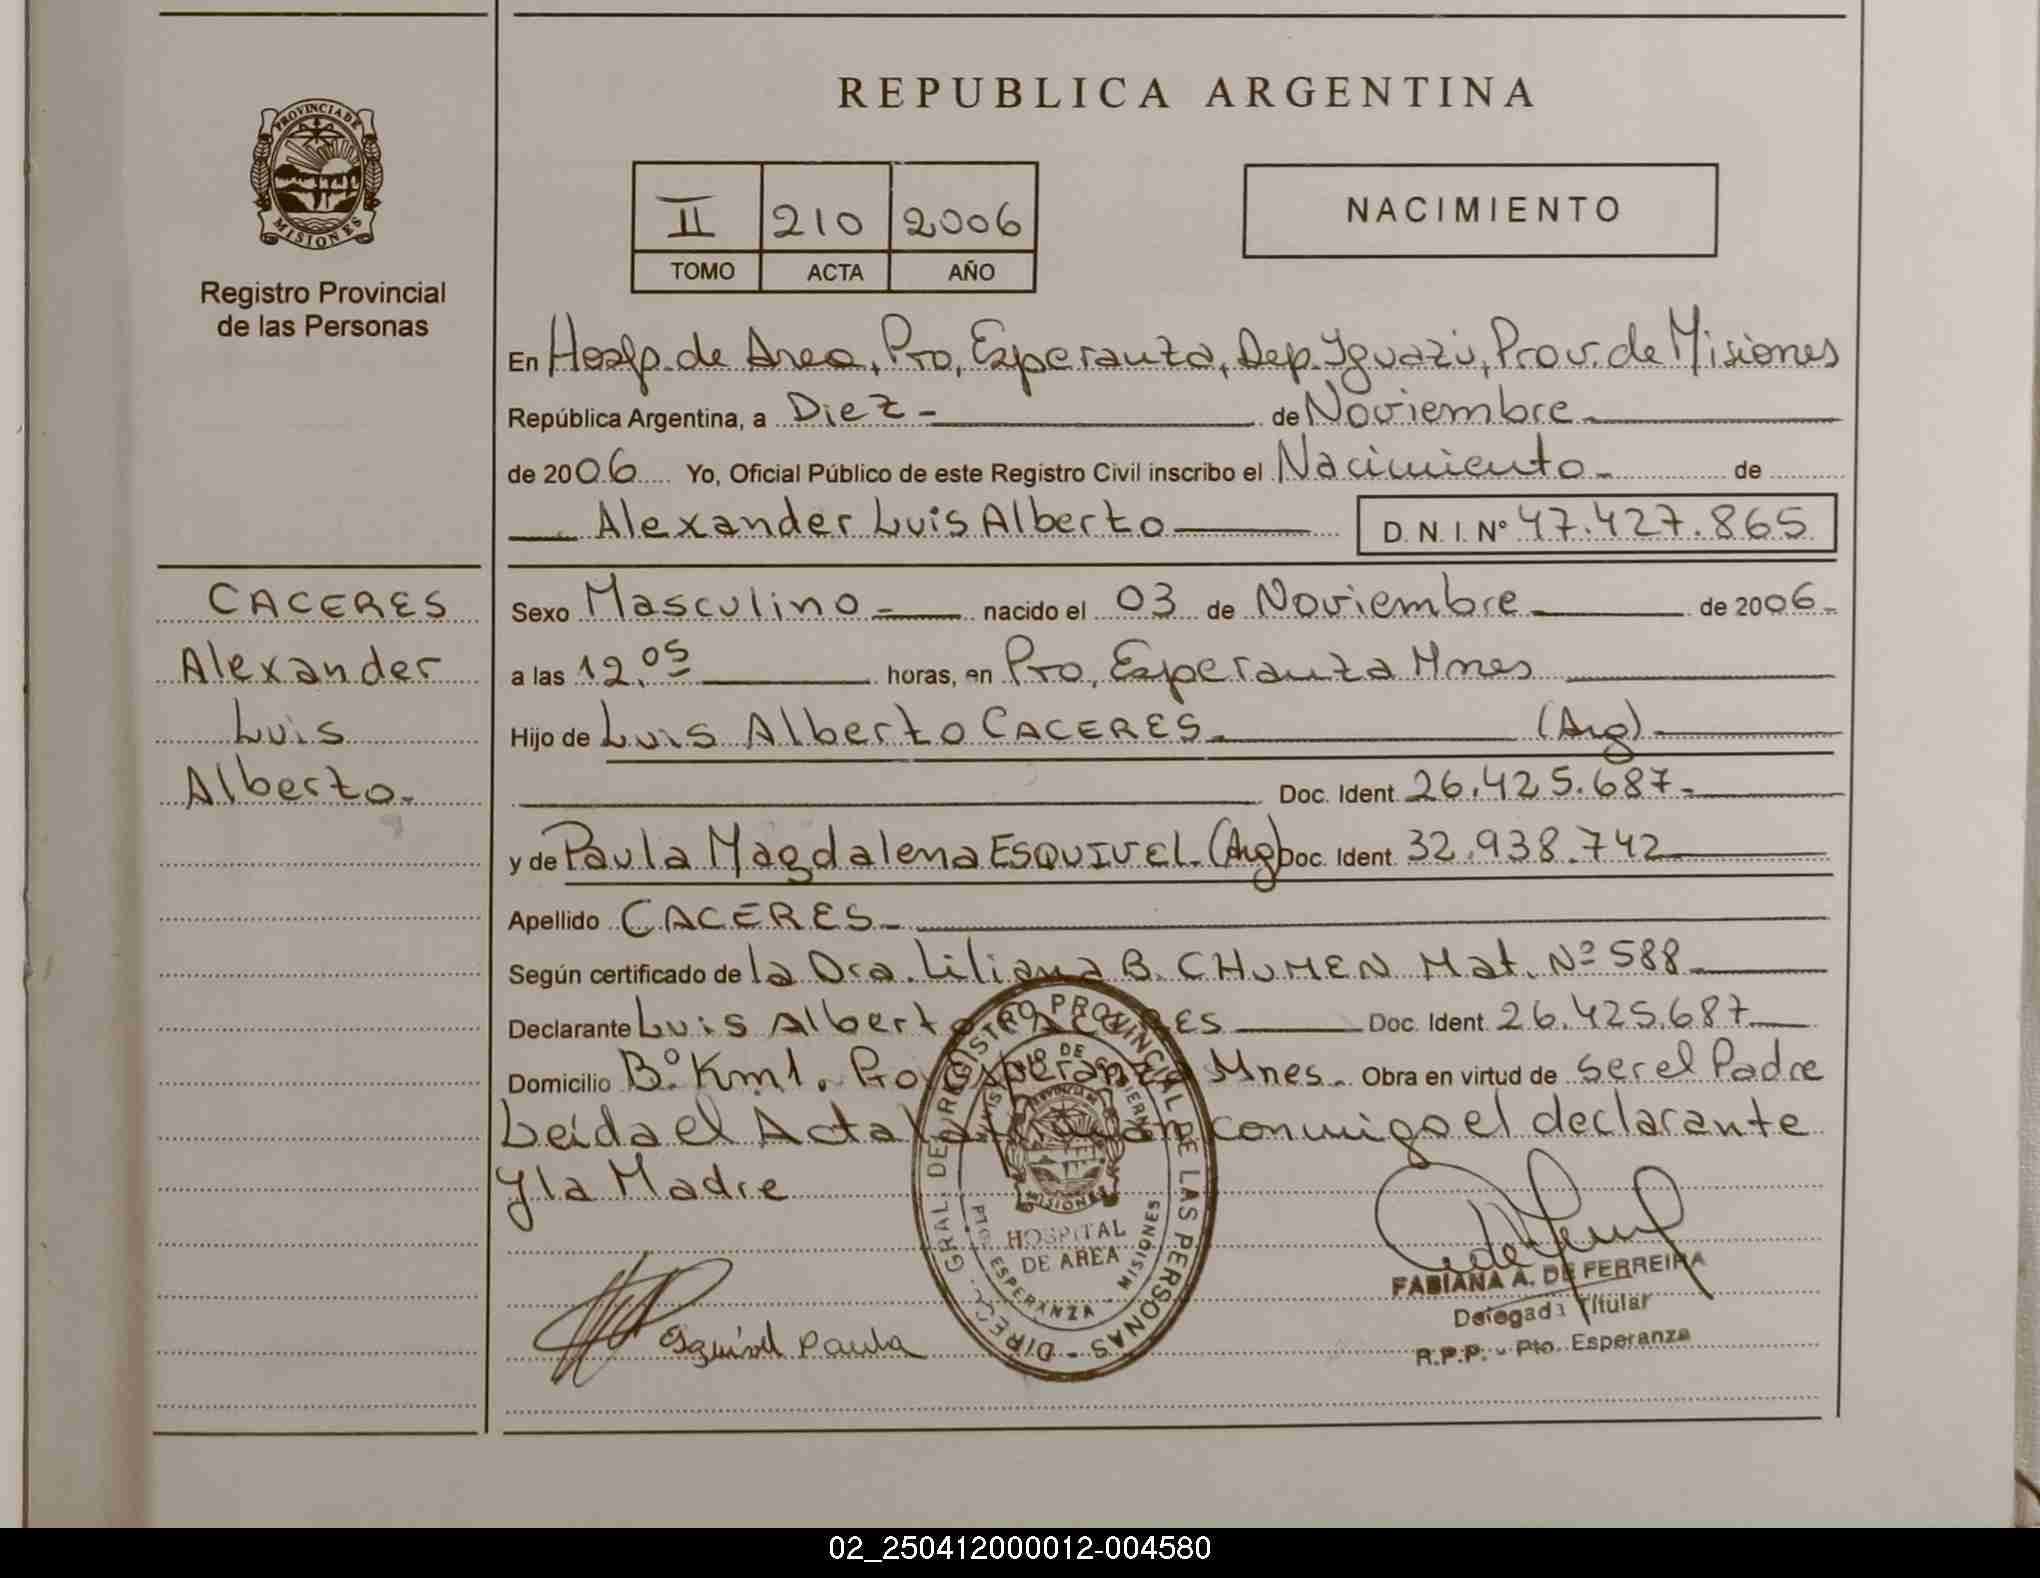 REPUBLICA ARGENTINA
PROVINCIA DE
MISIONES
Registro Provincial
de las Personas
II 210 2006
TOMO ACTA AÑO
NACIMIENTO
En Hosp. de Area, Pto, Esperanza, Dep. Iguazú, Prov. de Misiones
República Argentina, a Diez - de Noviembre
de 2006 Yo, Oficial Público de este Registro Civil inscribo el Nacimiento - de
Alexander Luis Alberto D. N. I. Nº 47.427.865
CACERES
Alexander
Luis
Alberto.
Sexo Masculino - nacido el 03 de Noviembre de 2006 -
a las 12.05 horas, en Pto, Esperanza Mnes
Hijo de Luis Alberto CACERES. (Arg)
Doc. Ident. 26.425.687.-
y de Paula Magdalena ESQUIVEL. (Arg) Doc. Ident. 32.938.742
Apellido CACERES -
Según certificado de la Dra. Liliana B. CHUMEN Mat. Nº 588
Declarante Luis Alberto CACERES Doc. Ident. 26.425.687
Domicilio Bº Km1. Pto, Esperanza Mnes. Obra en virtud de ser el Padre
Leida el Acta la conmigo el declarante
y la Madre
Esquivel Paula
DIREC. GRAL. DE REGISTRO PROVINCIAL DE LAS PERSONAS
MISIONES
HOSPITAL
DE AREA
PTO. ESPERANZA - MISIONES
FABIANA A. DE FERREIRA
Delegada Titular
R.P.P. - Pto. Esperanza
02_250412000012-004580